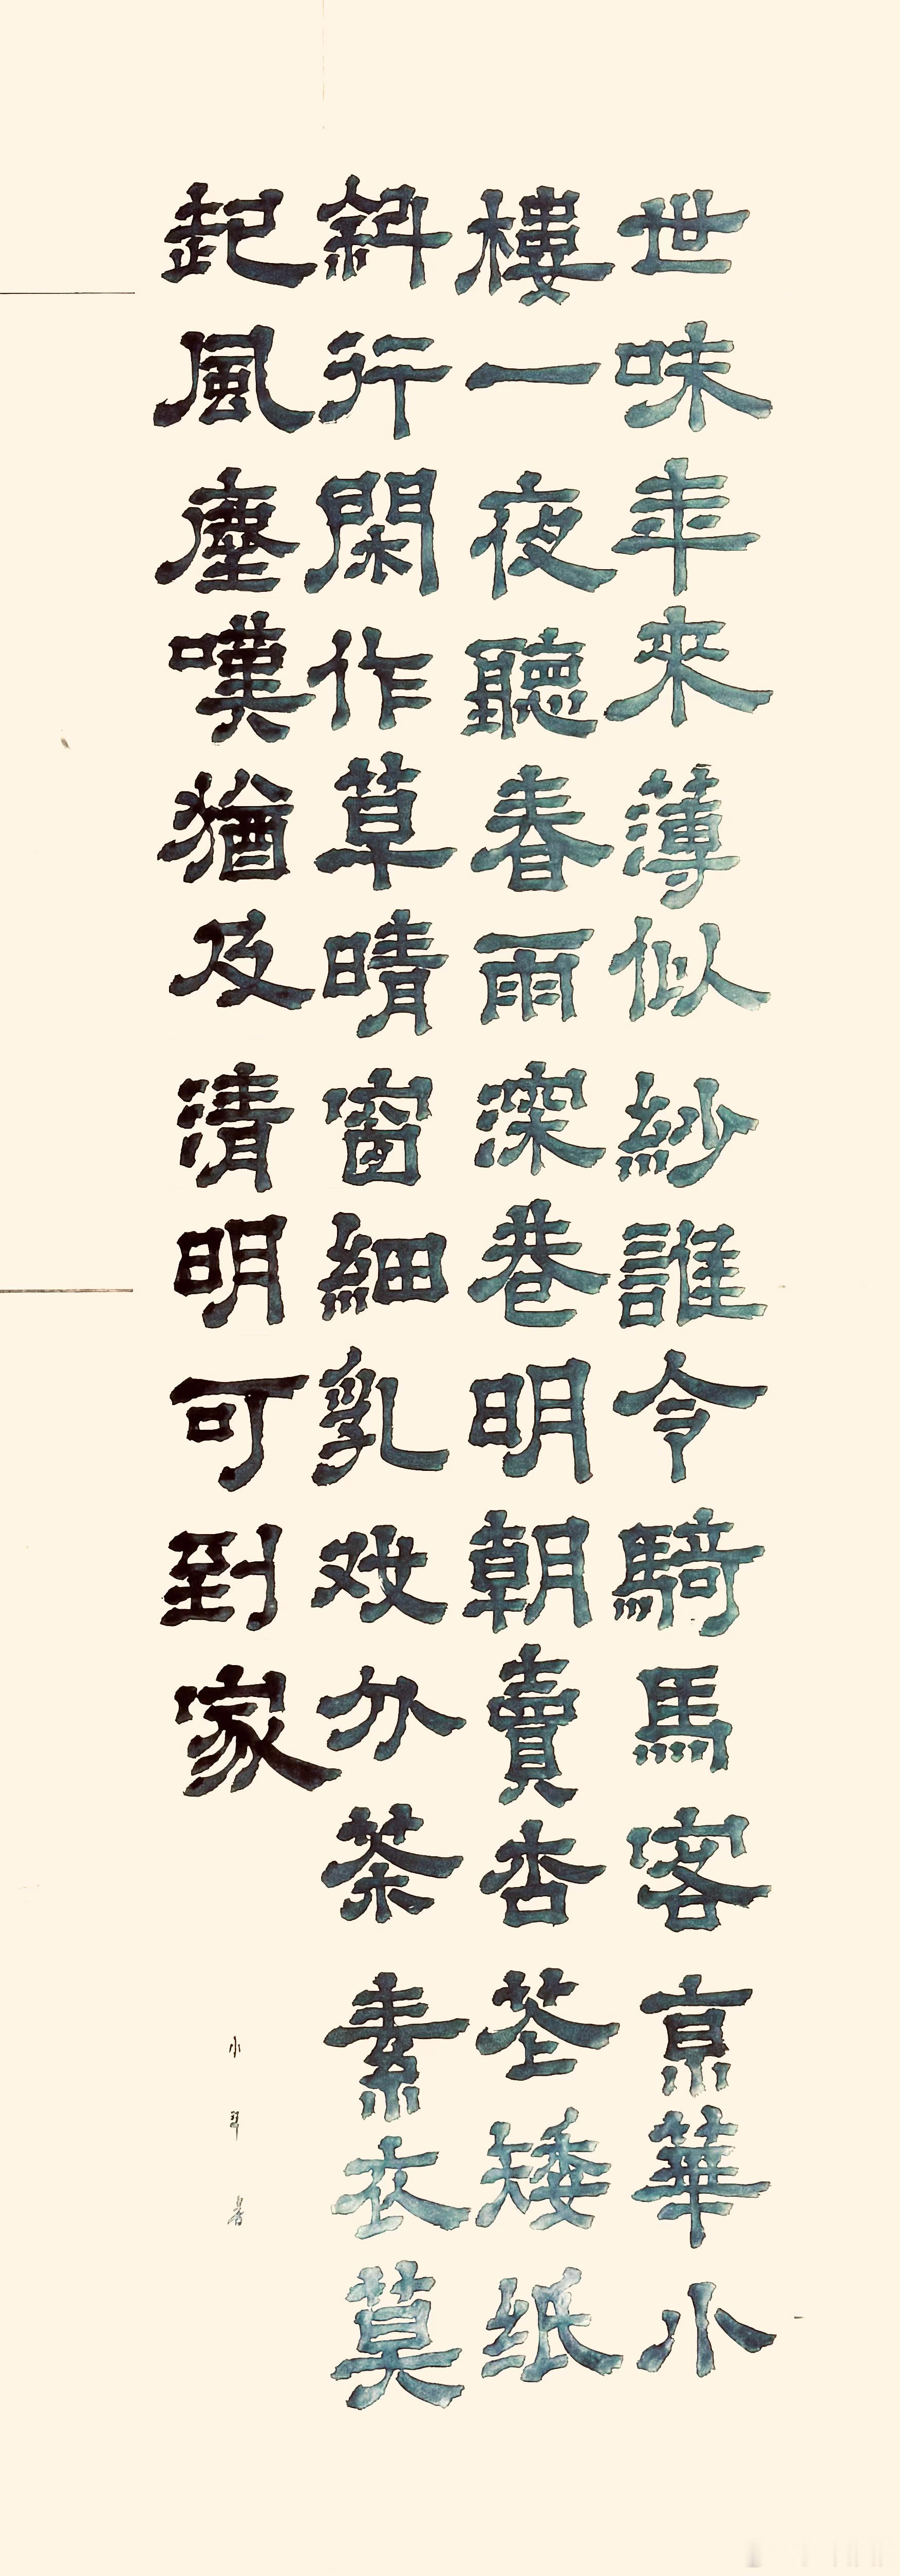 世味年來薄似紗誰令騎馬客京華小
樓一夜聽春雨深巷明朝賣杏花矮纸
斜行閑作草晴窗細乳戏分茶素衣莫
起風塵嘆猶及清明可到家
小